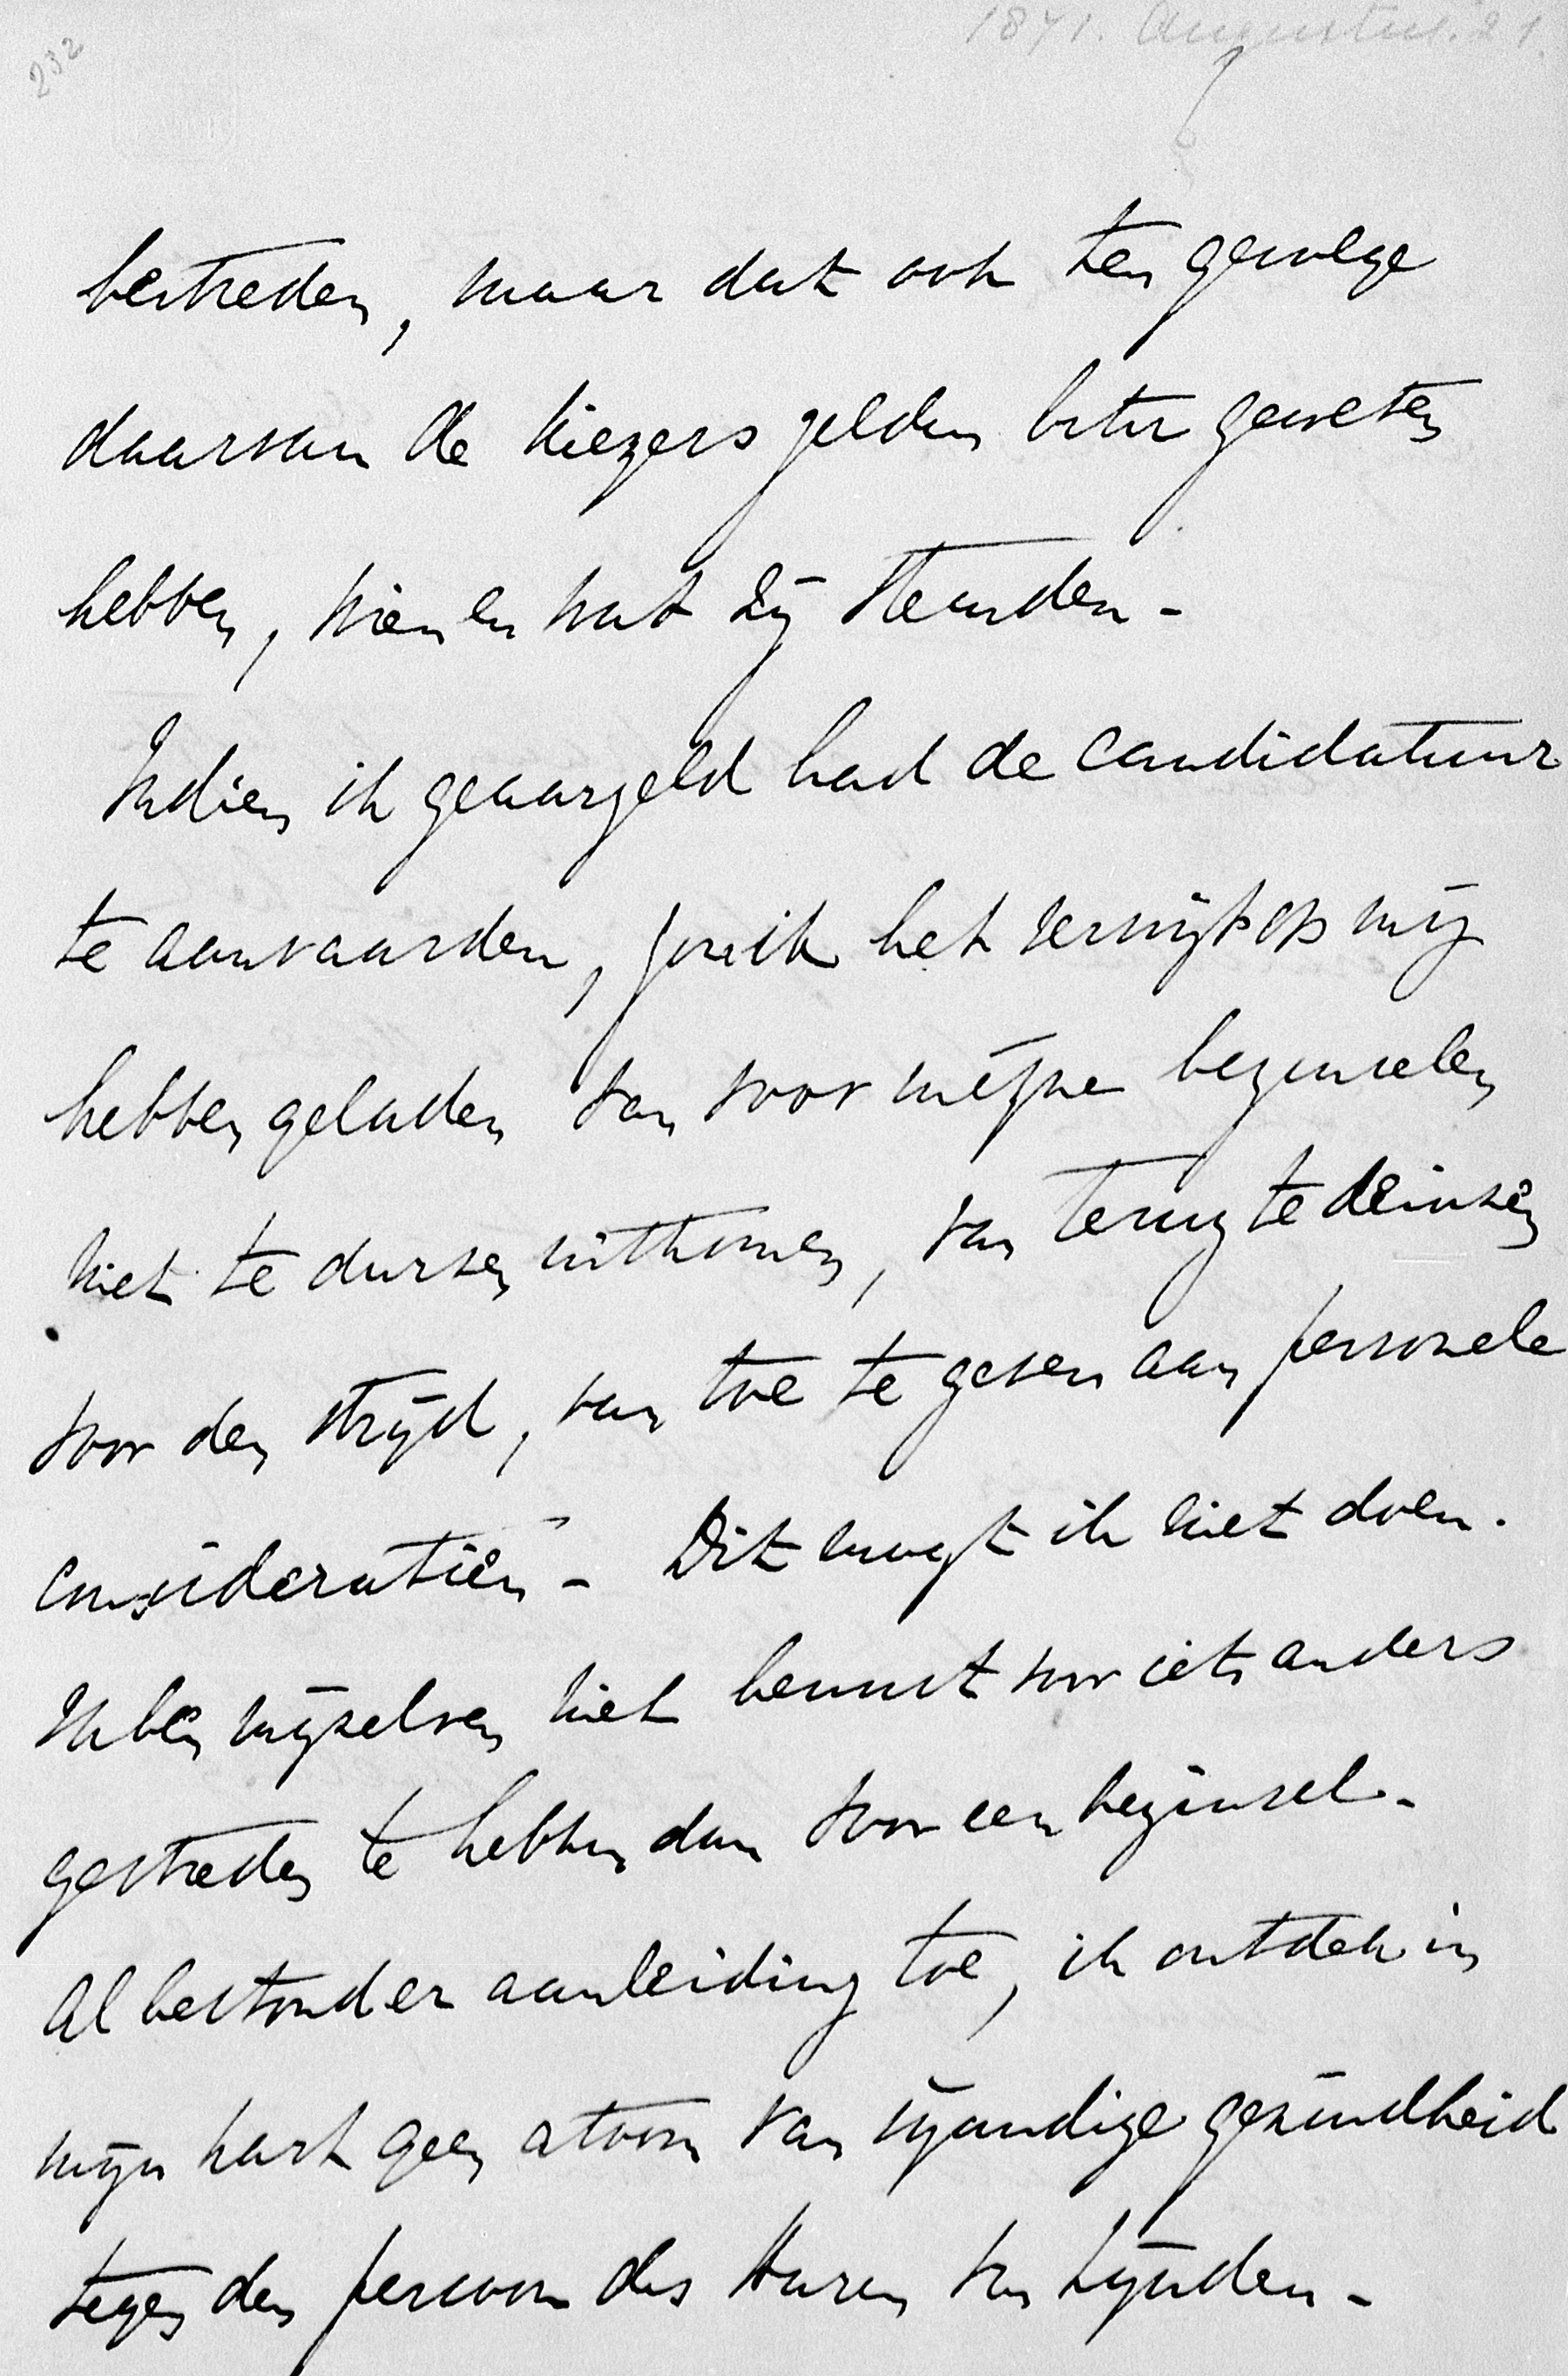 232
1871. Augustus. 21.
bestreden, maar dat ook ten gevolge
daarvan de kiezers zelden beter geweten
hebben, wien en wat zij stemden -
Indien ik geaarzeld had de candidatuur
te aanvaarden, zou ik het verwijt op mij
hebben geladen van voor mijne beginselen
niet te durven uitkomen, van terug te deinsen
voor den strijd, van toe te geven aan personele
consideratiën - Dit mogt ik niet doen.
Ik ben mijzelven niet bewust voor iets anders
gestreden te hebben dan voor een beginsel -
Al bestond er aanleiding toe, ik ontdek in
mijn hart geen atoom van vijandige gezindheid
tegen den persoon des Heeren van Lijnden -